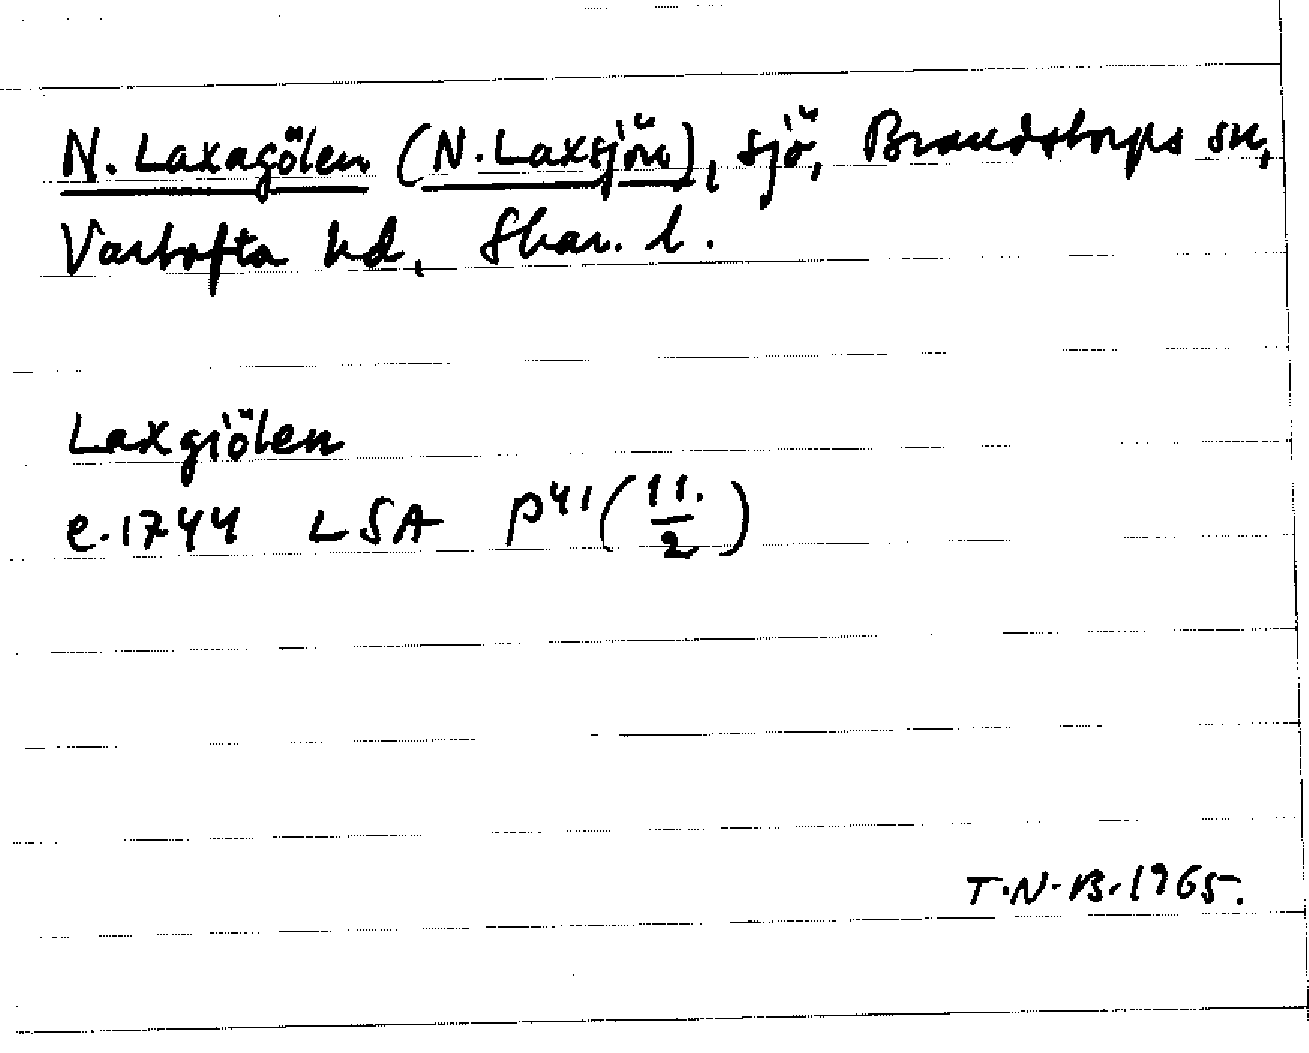 N. Laxagölen (N. Laxsjön), sjö, Brandstorps sn,
Vartofta hd, Skar. l.
Laxgiölen
e. 1744 LSA P41 (11./2)
T.N.B. 1965.